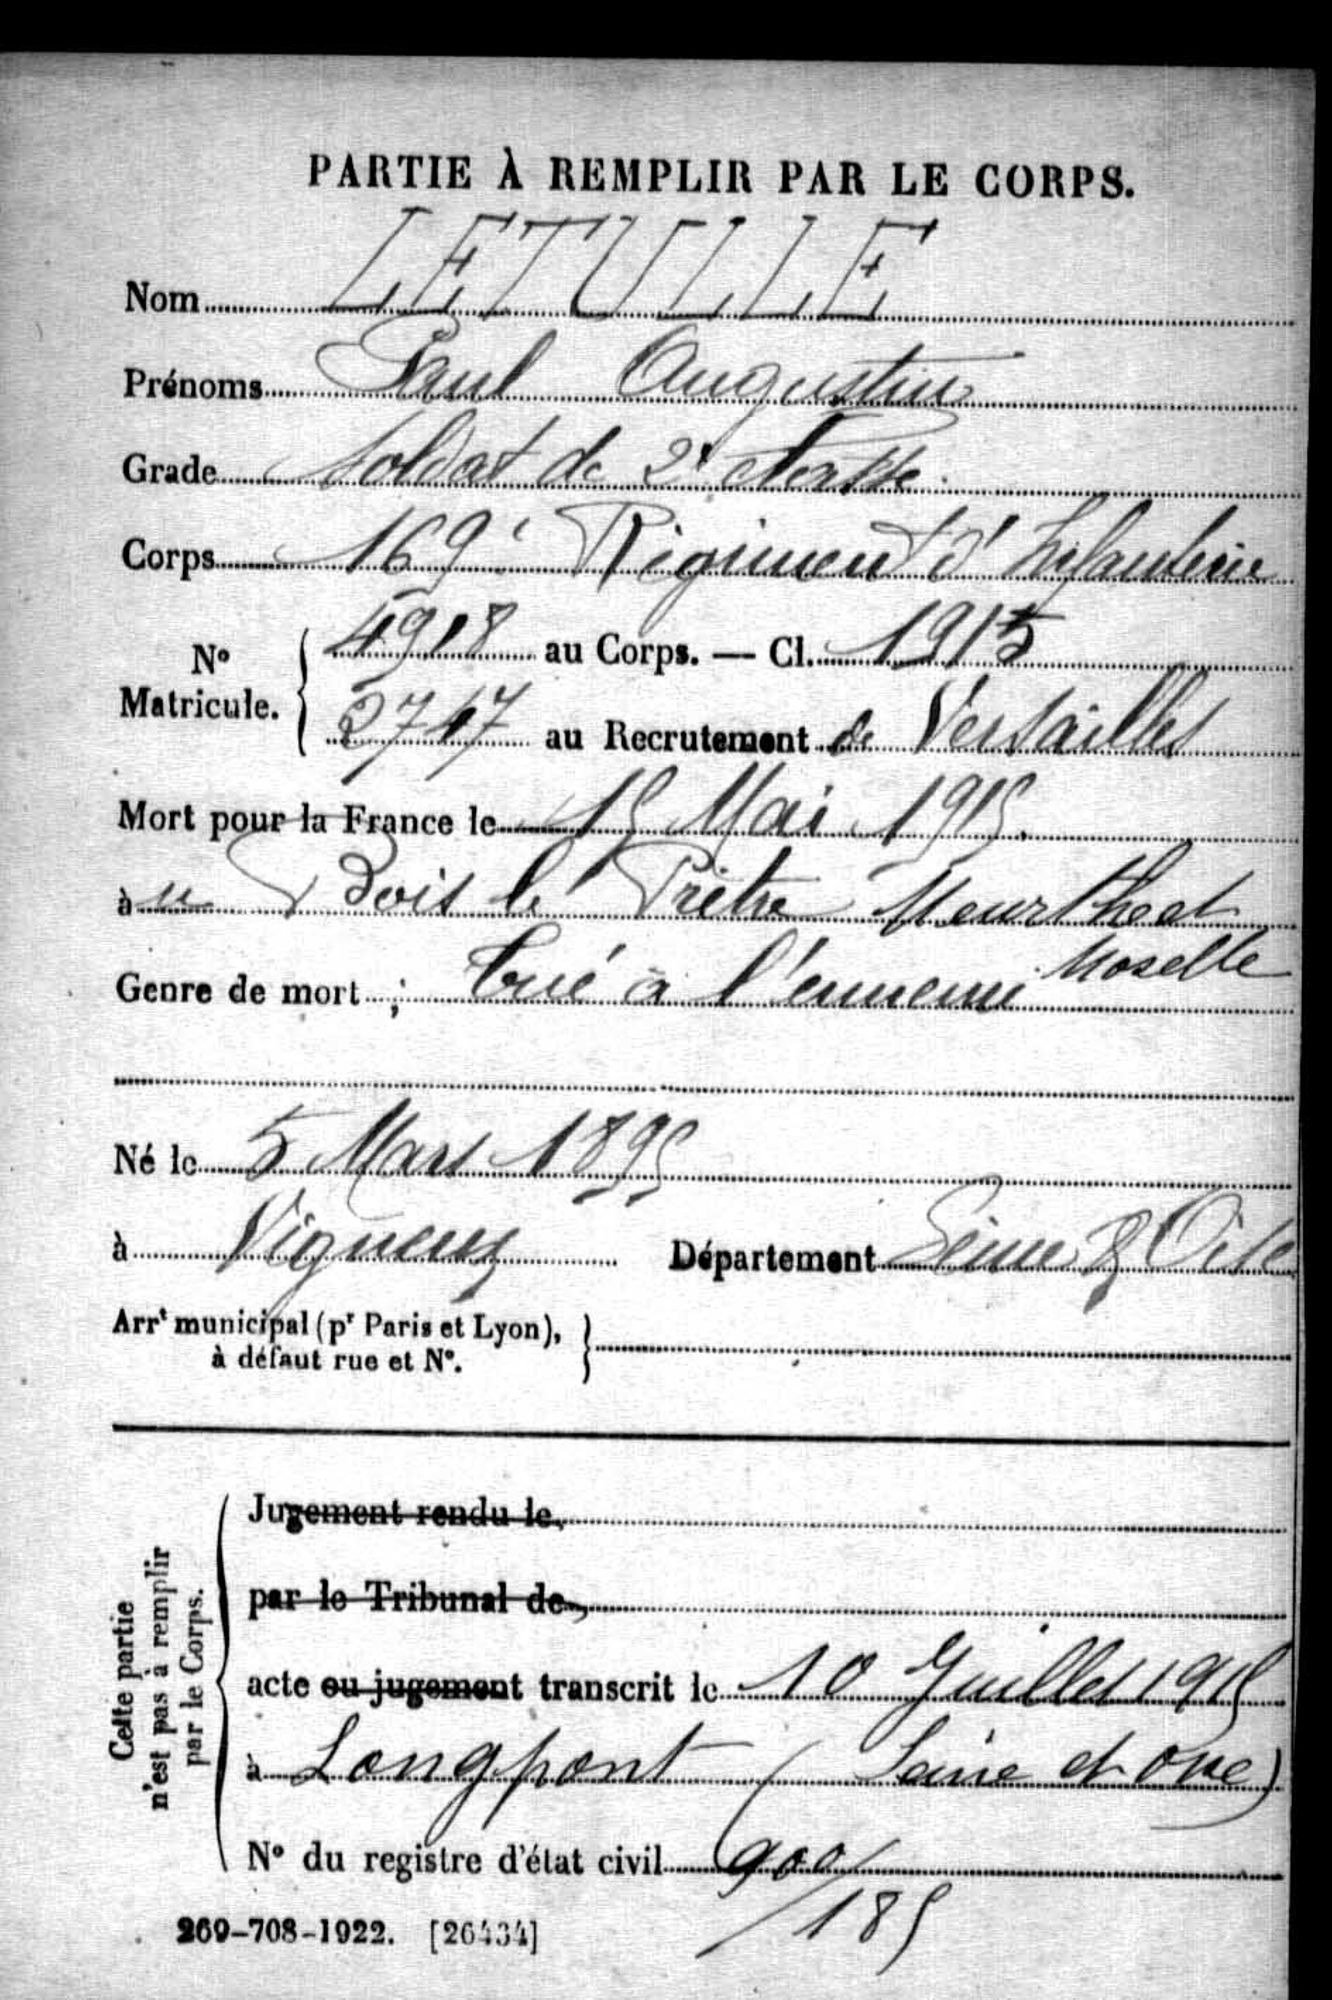 PARTIE À REMPLIR PAR LE CORPS.
Nom LETULLE
Prénoms Paul Augustin
Grade Soldat de 2e classe.
Corps 169e Régiment d'Infanterie
N° Matricule. 4918 au Corps. — Cl. 1915
2747 au Recrutement de Versailles
Mort pour la France le 15 Mai 1915.
à u Bois le Prêtre Meurthe et
Moselle
Genre de mort ; Tué à l'ennemi
Né le 5 Mars 1895
à Vigneux Département Seine & Oise
Arrt municipal (pr Paris et Lyon),
à défaut rue et N°.
Cette partie
n'est pas à remplir
par le Corps.
Jugement rendu le
par le Tribunal de
acte ou jugement transcrit le 10 Juillet 1915
à Longpont (Seine et Oise)
N° du registre d'état civil 900/
185
269-708-1922. [26434]